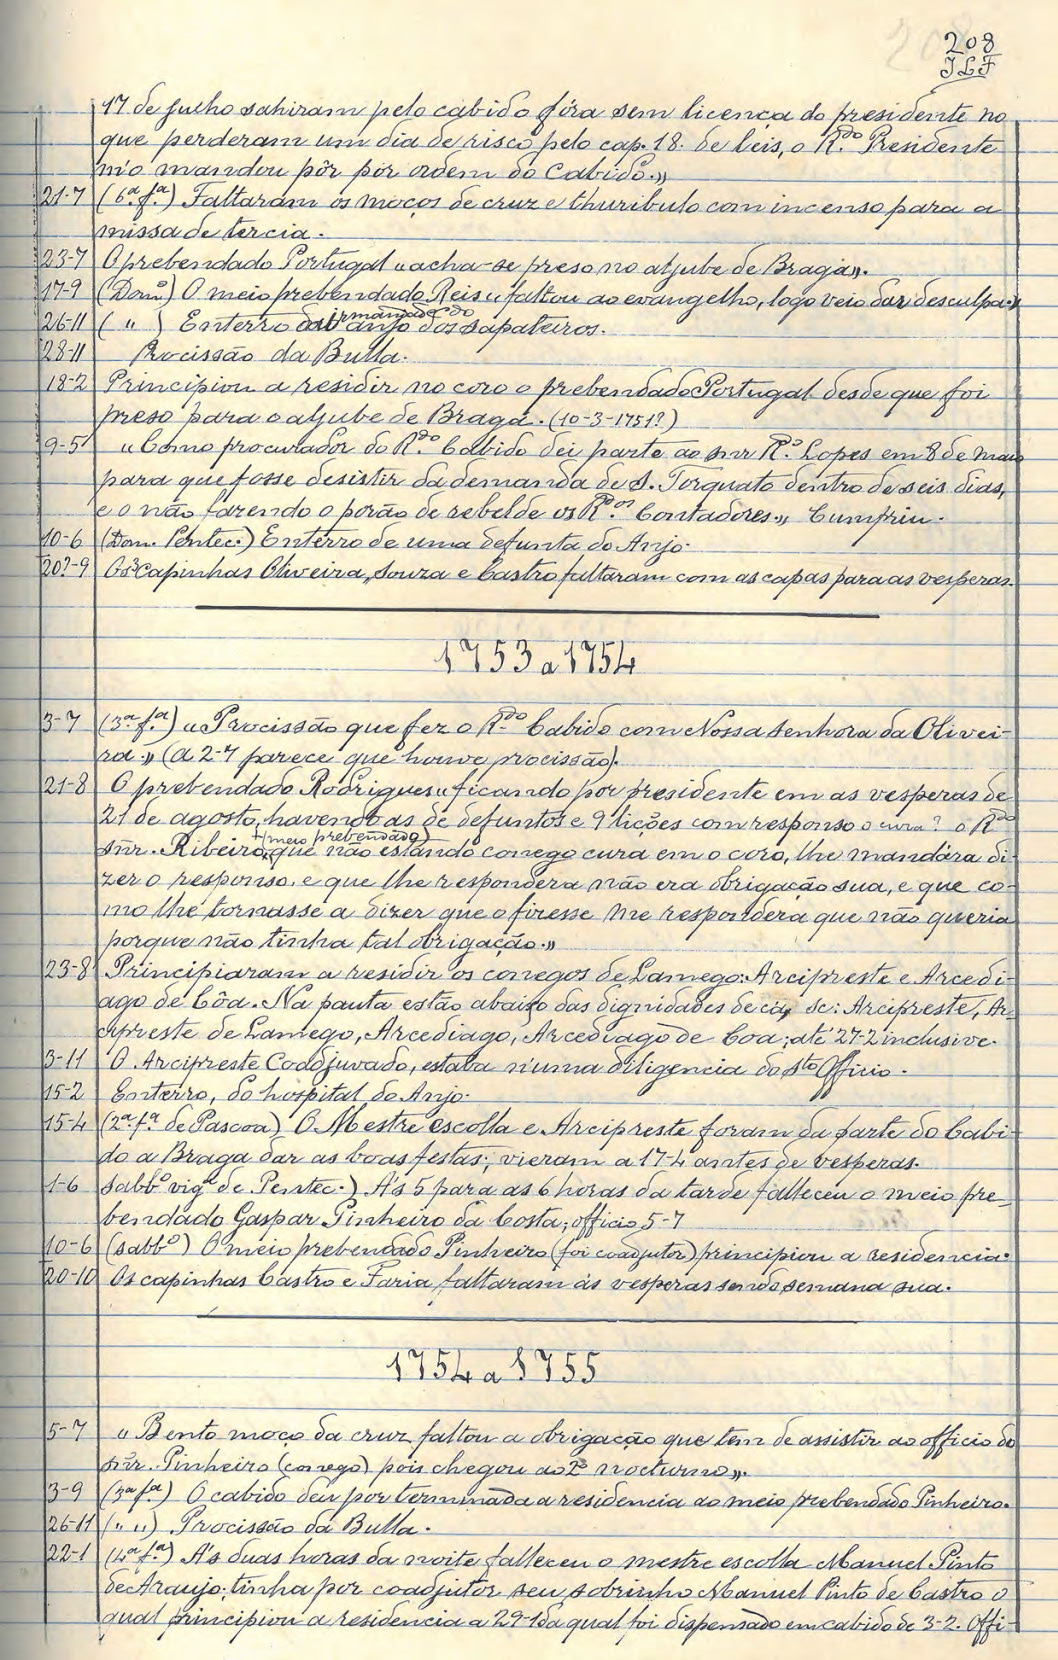 208
JLF
17 de julho sahiram pelo cabido fóra sem licença do presidente no
que perderam um dia de risco pelo cap. 18. de leis, o R.do Presidente
m'o mandou pôr por ordem do Cabido.»
21-7 (6ª fª) Faltaram os moços de cruz e thuribulo com incenso para a
missa de tercia.
23-7 O prebendado Portugal «acha-se preso no aljube de Braga».
17-9 (Domº) O meio prebendado Reis «faltou ao evangelho, logo veio dar desculpa.»
irmandade do
26-11 ( " ) Enterro da anjo dos sapateiros.
28-11 Procissão da Bulla.
18-2 Principiou a residir no coro o prebendado Portugal desde que foi
preso para o aljube de Braga. (10-3-1751?)
9-5 «Como procurador do R.do Cabido dei parte ao snr R.do Lopes em 8 de maio
para que fosse desistir da demanda de S. Torquato dentro de seis dias,
e o não fazendo o porão de rebelde os R.dos Contadores.» Cumpriu.
10-6 (Dom. Pentec.) Enterro de uma defunta do Anjo.
20?-9 Os Capinhas Oliveira, Souza e Castro faltaram com as capas para as vesperas.
1753 a 1754
3-7 (3ª fª) «Procissão que fez o R.do Cabido com Nossa Senhora da Olivei-
ra.» (A 2-7 parece que houve procissão).
21-8 O prebendado Rodrigues «ficando por presidente em as vesperas de
21 de agosto, havendo as de defuntos e 9 lições com responso o cura? o R.do
(meio prebendado)
snr. Ribeiro, que não estando conego cura em o coro, lhe mandára di-
zer o responso, e que lhe respondera não era obrigação sua, e que co-
mo lhe tornasse a dizer que o fizesse me respondera que não queria
porque não tinha tal obrigação.»
23-8 Principiaram a residir os conegos de Lamego: Arcipreste e Arcedi-
ago de Côa. Na pauta estão abaixo das dignidades de cá, sc: Arcipreste, Ar-
cipreste de Lamego, Arcediago, Arcediago de Coa; até 27-2 inclusive.
3-11 O Arcipreste Coadjuvado, estava n'uma diligencia do Sto Officio.
15-2 Enterro, do hospital do Anjo.
15-4 (2ª fª de Pascoa) O Mestre escolla e Arcipreste foram da parte do Cabi-
do a Braga dar as boas festas; vieram a 17-4 antes de vesperas.
1-6 Sabbº vigª de Pentec.) A's 5 para as 6 horas da tarde falleceu o meio pre-
bendado Gaspar Pinheiro da Costa; officio 5-7
10-6 (sabbº) O meio prebendado Pinheiro (foi coadjutor) principiou a residencia.
20-10 Os capinhas Castro e Faria faltaram ás vesperas sendo semana sua.
1754 a 1755
5-7 «Bento moço da cruz faltou a obrigação que tem de assistir ao officio do
snr. Pinheiro (conego) pois chegou ao 2º nocturno».
3-9 (3ª fª) O cabido deu por terminada a residencia ao meio prebendado Pinheiro.
26-11 (" ") Procissão da Bulla.
22-1 (4ª fª) A's duas horas da noite falleceu o mestre escolla Manuel Pinto
de Araujo; tinha por coadjutor seu sobrinho Manuel Pinto de Castro o
qual principiou a residencia a 29-1 da qual foi dispensado em cabido de 3-2. Offi-